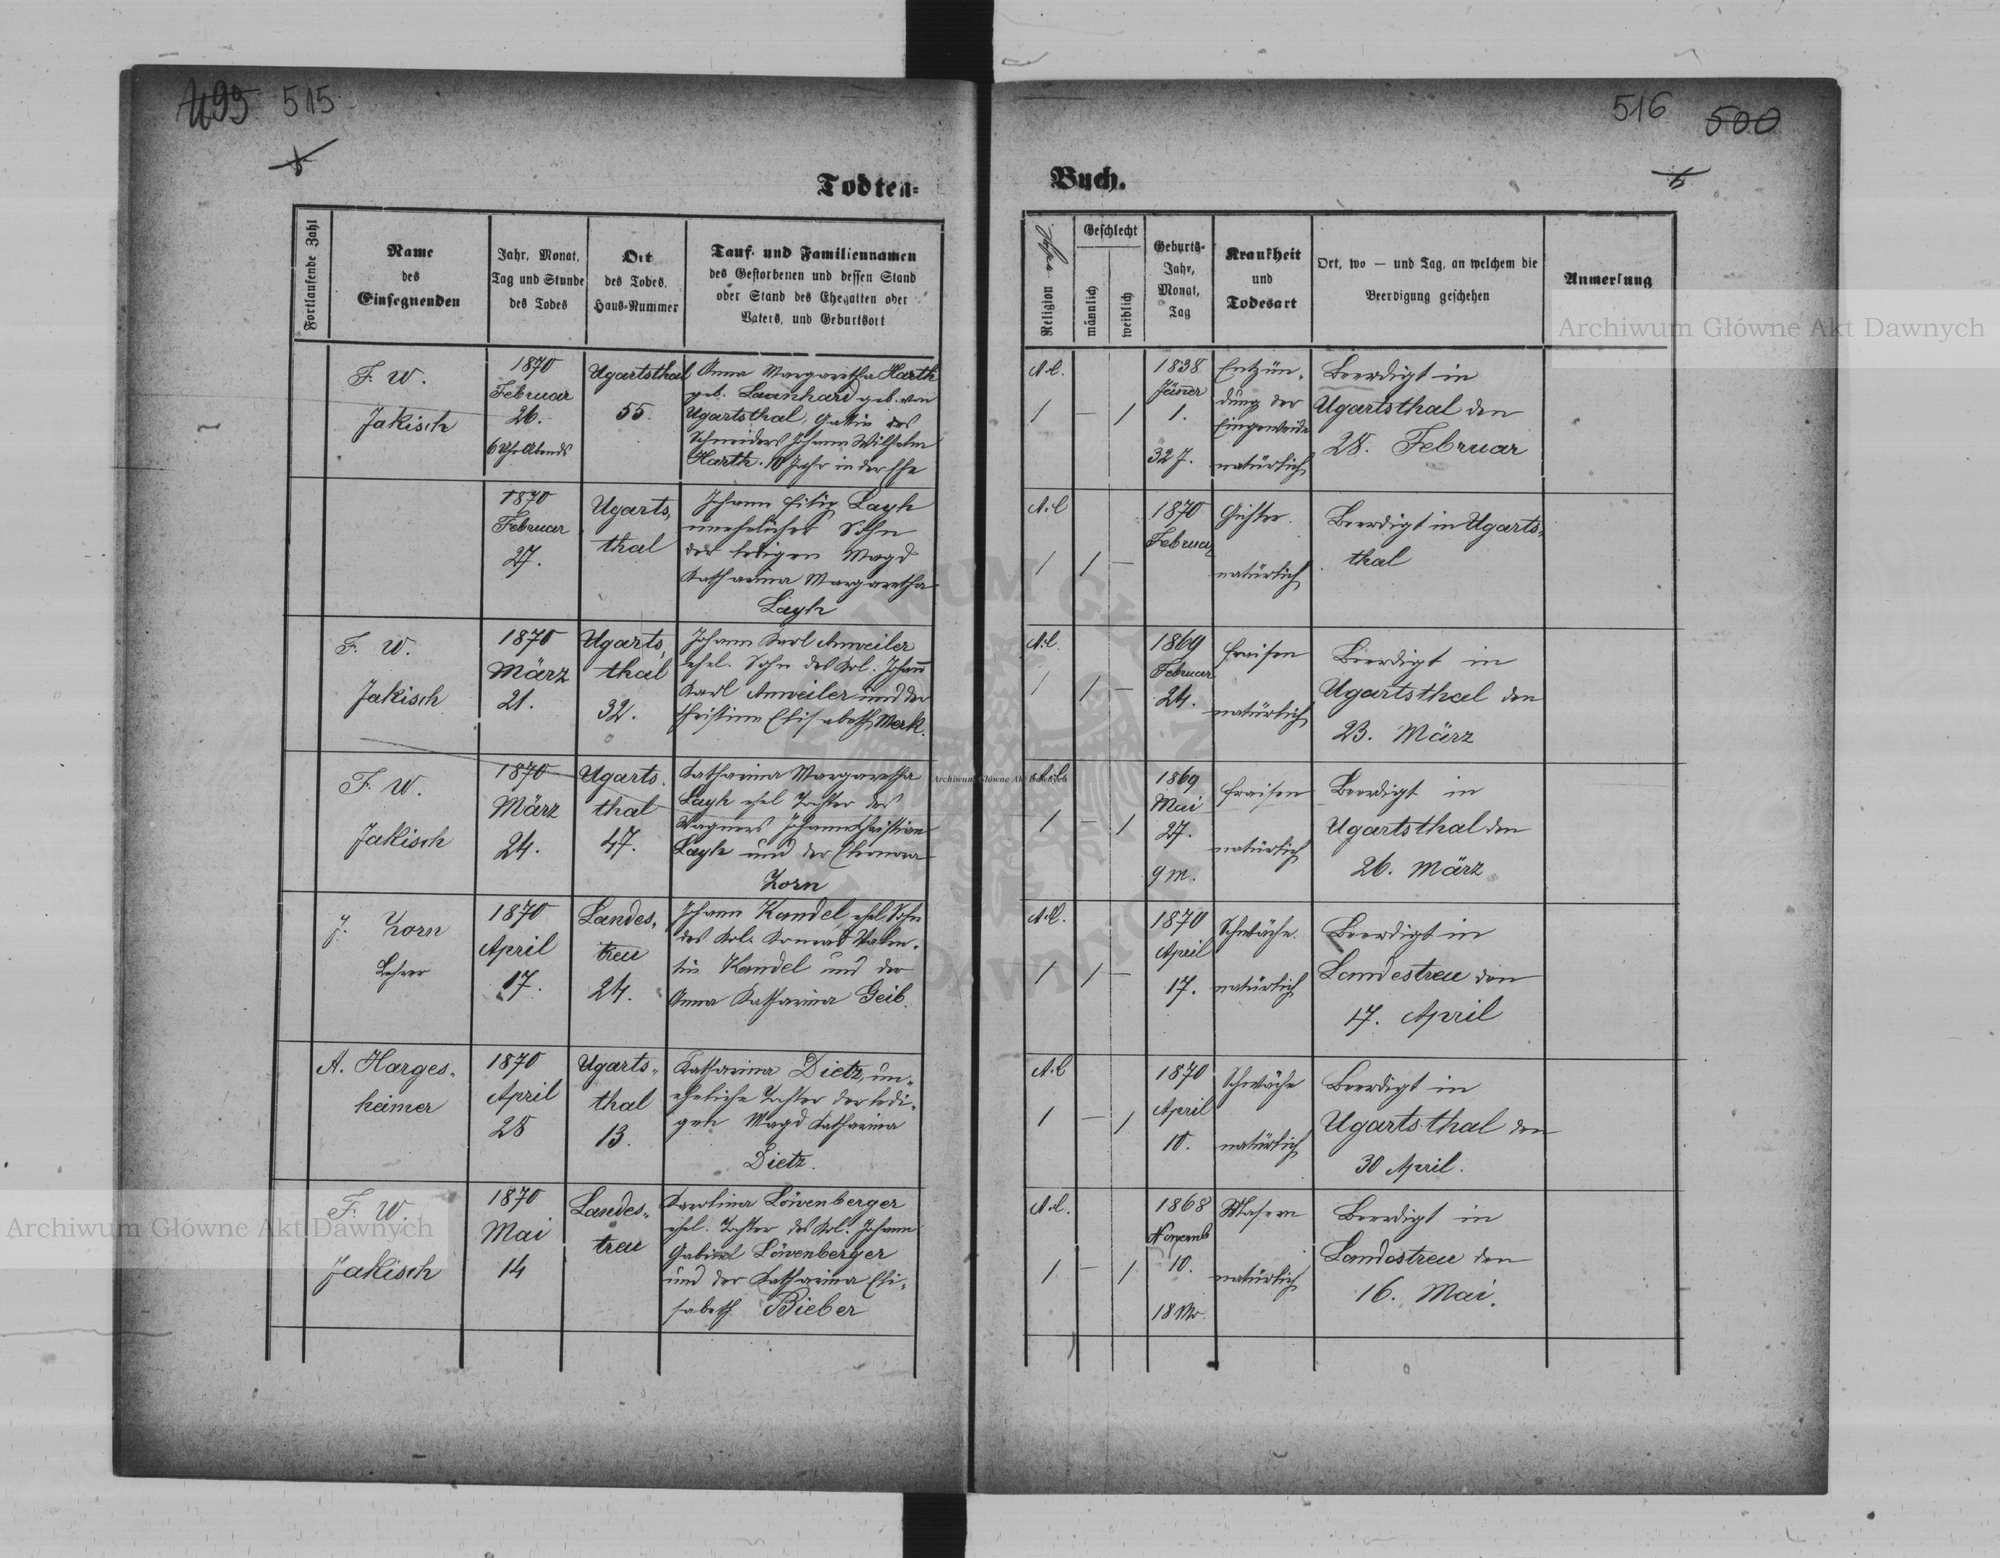 499 515
516 500
Todten-
Buch.
Fortlaufende Zahl
Name
des
Einsegnenden
Jahr, Monat,
Tag und Stunde
des Todes
Ort
des Todes,
Haus-Nummer
Tauf- und Familiennamen
des Gestorbenen und dessen Stand
oder Stand des Ehegatten oder
Vaters, und Geburtsort
Religion
Geschlecht
männlich
weiblich
Geburts-
Jahr,
Monat,
Tag
Krankheit
und
Todesart
Ort, wo — und Tag, an welchem die
Beerdigung geschehen
Anmerkung
F. W.
Jakisch
1870
Februar
26.
6 Uhr Abends
Ugartsthal
55.
Anna Margaretha Harth
geb. Launhard geb. von
Ugartsthal, Gattin des
Schneiders Johann Wilhelm
Harth. 10 Jahr in der Ehe
A.C.
1 — 1
1838
Jänner
1.
32 J.
Entzün-
dung der
Eingeweide
natürlich
Beerdigt in
Ugartsthal den
28. Februar
1870
Februar
27.
Ugarts-
thal
Johann Layh
unehelicher Sohn
der ledigen Magd
Katharina Margaretha
Layh
A.C
1 1 —
1870
Februar
Gichter.
natürlich
Beerdigt in Ugarts-
thal
F. W.
Jakisch
1870
März
21.
Ugarts-
thal
32.
Johann Karl Anweiler
ehel. Sohn des Kol. Johann
Karl Anweiler und der
Christine Elisabeth Merk.
A.C.
1 1 —
1869
Februar
24.
Fraisen
natürlich
Beerdigt in
Ugartsthal den
23. März
F. W.
Jakisch
1870
März
24.
Ugarts-
thal
47.
Katharina Margaretha
Layh ehel Tochter des
Wagners Johann Christian
Layh und der Eleonora
Zorn
A.C.
1 — 1
1869
Mai
27.
9 M.
Fraisen
natürlich
Beerdigt in
Ugartsthal den
26. März
J. Zorn
Lehrer
1870
April
17.
Landes-
treu
24.
Johann Kandel, ehel. Sohn
des Kol. Konrad Valen-
tin Kandel und der
Anna Katharina Geib.
A.C.
1 1 —
1870
April
17.
Schwäche.
natürlich
Beerdigt in
Landestreu den
17. April
A. Harges-
heimer
1870
April
28
Ugarts-
thal
13.
Katharina Dietz, un-
eheliche Tochter der ledi-
gen Magd Katharina
Dietz.
A.C
1 — 1
1870
April
10.
Schwäche
natürlich
Beerdigt in
Ugartsthal den
30 April.
F. W.
Jakisch
1870
Mai
14
Landes-
treu
Karolina Löwenberger
ehel. Tochter des Kol. Johann
Gabriel Löwenberger
und der Katharina Eli-
sabeth Bieber
A.C.
1 — 1
1868
Novemb
10.
18 Mo.
Masern
natürlich
Beerdigt in
Landestreu den
16. Mai.
Archiwum Główne Akt Dawnych
Archiwum Główne Akt Dawnych
Archiwum Główne Akt Dawnych